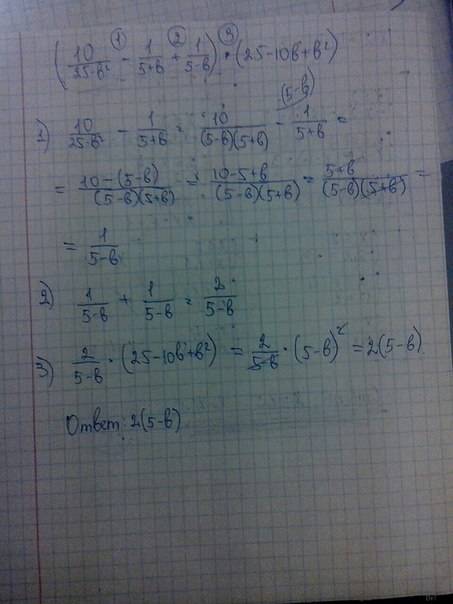 ① ② ③
(10/(25-в²) - 1/(5+в) + 1/(5-в)) · (25-10в+в²)
1) 10/(25-в²) - 1/(5+в) = 10/((5-в)(5+в)) - 1/(5+в) (5-в) =
= (10-(5-в))/((5-в)(5+в)) = (10-5+в)/((5-в)(5+в)) = (5+в)/((5-в)(5+в)) =
= 1/(5-в)
2) 1/(5-в) + 1/(5-в) = 2/(5-в)
3) 2/(5-в) · (25-10в+в²) = 2/(5-в) · (5-в)² = 2(5-в)
Ответ: 2(5-в)